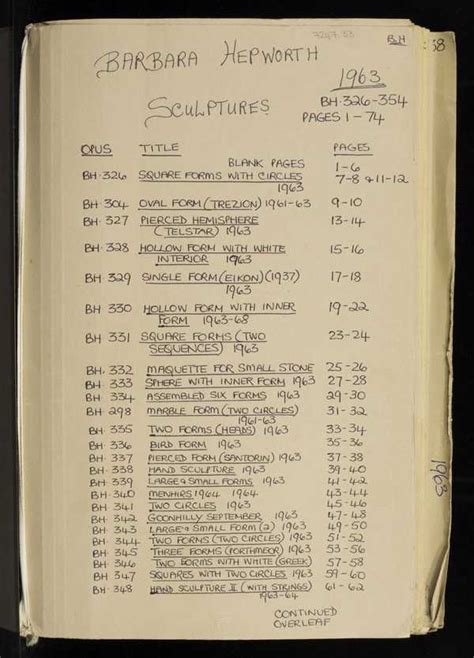 7247.33
BH
58
BARBARA HEPWORTH
1963
SCULPTURES
BH·326-354
PAGES 1-74
OPUS TITLE PAGES
BLANK PAGES 1-6
BH·326 SQUARE FORMS WITH CIRCLES 7-8 & 11-12
1963
BH·304 OVAL FORM (TREZION) 1961-63 9-10
BH·327 PIERCED HEMISPHERE 13-14
(TELSTAR) 1963
BH·328 HOLLOW FORM WITH WHITE 15-16
INTERIOR 1963
BH·329 SINGLE FORM (EIKON) (1937) 17-18
1963
BH 330 HOLLOW FORM WITH INNER 19-22
FORM 1963-68
BH 331 SQUARE FORMS (TWO 23-24
SEQUENCES) 1963
BH·332 MAQUETTE FOR SMALL STONE 25-26
BH·333 SPHERE WITH INNER FORM 1963 27-28
BH·334 ASSEMBLED SIX FORMS 1963 29-30
BH·298 MARBLE FORM (TWO CIRCLES) 31-32
1961-63
BH·335 TWO FORMS (HEADS) 1963 33-34
BH·336 BIRD FORM 1963 35-36
BH·337 PIERCED FORM (SANTORIN) 1963 37-38
BH·338 HAND SCULPTURE 1963 39-40
BH·339 LARGE & SMALL FORMS 1963 41-42
BH·340 MENHIRS 1964 1964 43-44
BH·341 TWO CIRCLES 1963 45-46
BH·342 GOONHILLY SEPTEMBER 1963 47-48
BH·343 LARGE & SMALL FORM (2) 1963 49-50
BH·344 TWO FORMS (TWO CIRCLES) 1963 51-52
BH·345 THREE FORMS (PORTHMEOR) 1963 53-56
BH·346 TWO FORMS WITH WHITE (GREEK) 57-58
BH 347 SQUARES WITH TWO CIRCLES 1963 59-60
BH·348 HAND SCULPTURE II (WITH STRINGS) 61-62
1963-64
CONTINUED
OVERLEAF
1963